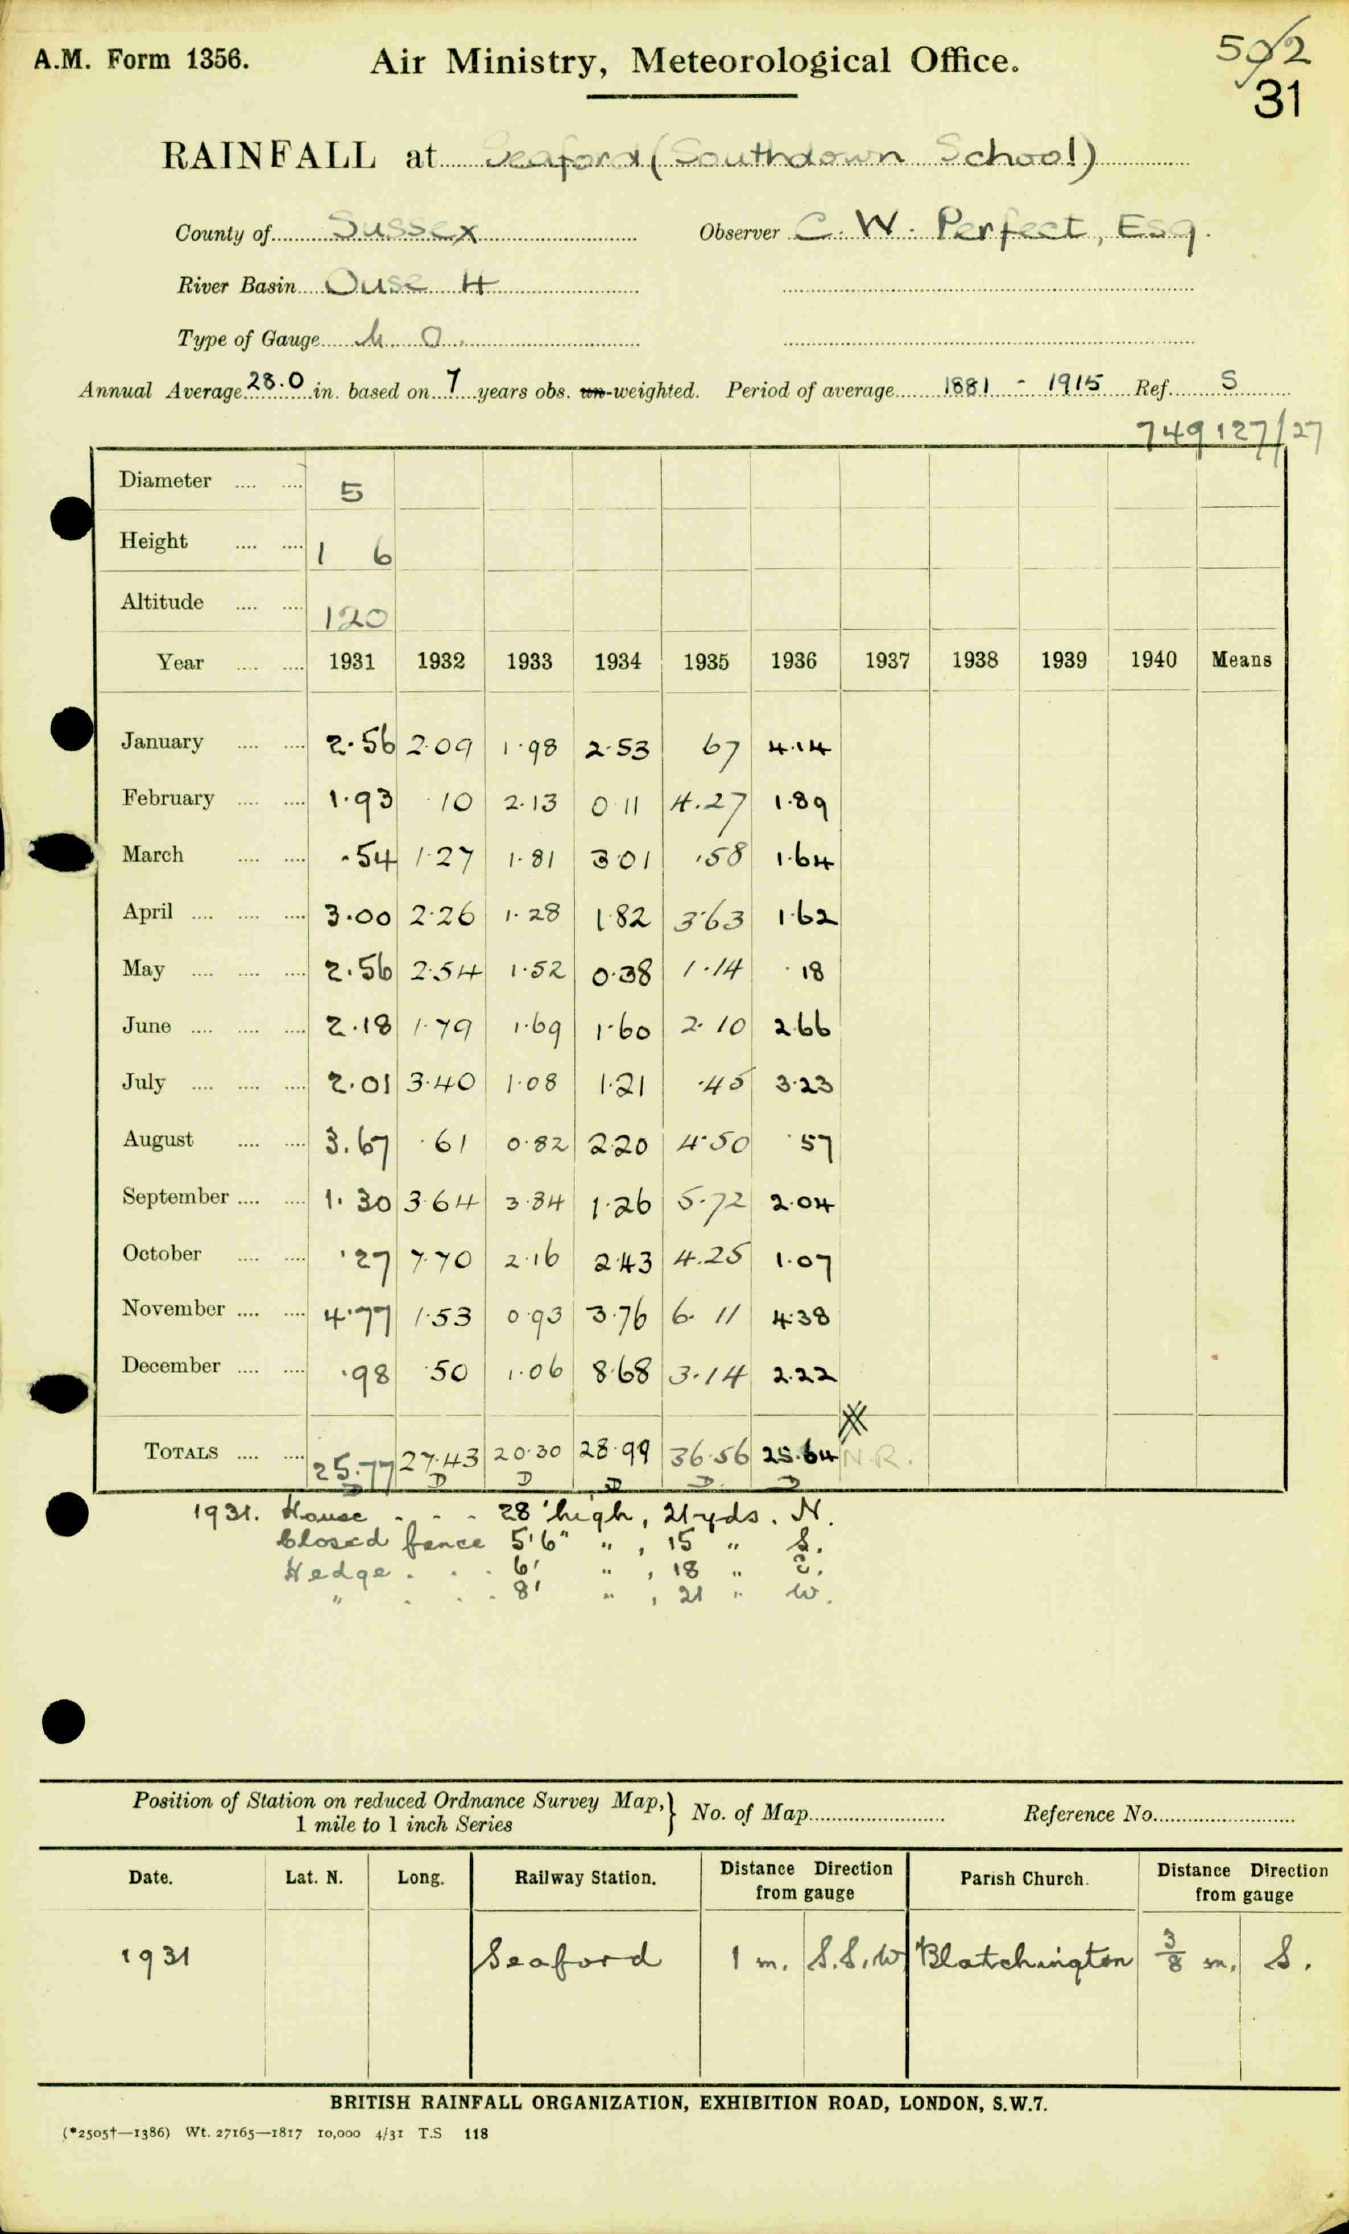 A.M. Form 1356. Air Ministry, Meteorological Office. 502
31
RAINFALL at Seaford (Southdown School)
County of Sussex Observer C. W. Perfect, Esq.
River Basin Ouse 4
Type of Gauge M O.
Annual Average 28.0 in. based on 7 years obs. un-weighted. Period of average 1881 - 1915 Ref. S
749127/27
Diameter 5
Height 1 6
Altitude 120
Year 1931 1932 1933 1934 1935 1936 1937 1938 1939 1940 Means
January 2.56 2.09 1.98 2.53 67 4.14
February 1.93 .10 2.13 0.11 4.27 1.89
March .54 1.27 1.81 3.01 .58 1.64
April 3.00 2.26 1.28 1.82 3.63 1.62
May 2.56 2.54 1.52 0.38 1.14 .18
June 2.18 1.79 1.69 1.60 2.10 2.66
July 2.01 3.40 1.08 1.21 .45 3.23
August 3.67 .61 0.82 2.20 4.50 .57
September 1.30 3.64 3.84 1.26 5.72 2.04
October .27 7.70 2.16 2.43 4.25 1.07
November 4.77 1.53 0.93 3.76 6.11 4.38
December .98 .50 1.06 8.68 3.14 2.22
TOTALS 25.77 27.43 20.30 28.99 36.56 25.64 N.R.
D D D D D D
1931. House . . . 28' high, 21 yds. N.
Closed fence 5'6" " , 15 " S.
Hedge . . . 6' " , 18 " E.
" . . . 8' " , 21 " W.
Position of Station on reduced Ordnance Survey Map,} No. of Map Reference No.
1 mile to 1 inch Series
Date. Lat. N. Long. Railway Station. Distance Direction from gauge Parish Church. Distance Direction from gauge
1931 Seaford 1 m. S.S.W Blatchington 3/8 m. S.
BRITISH RAINFALL ORGANIZATION, EXHIBITION ROAD, LONDON, S.W.7.
(*2505†—1386) Wt. 27165—1817 10,000 4/31 T.S 118